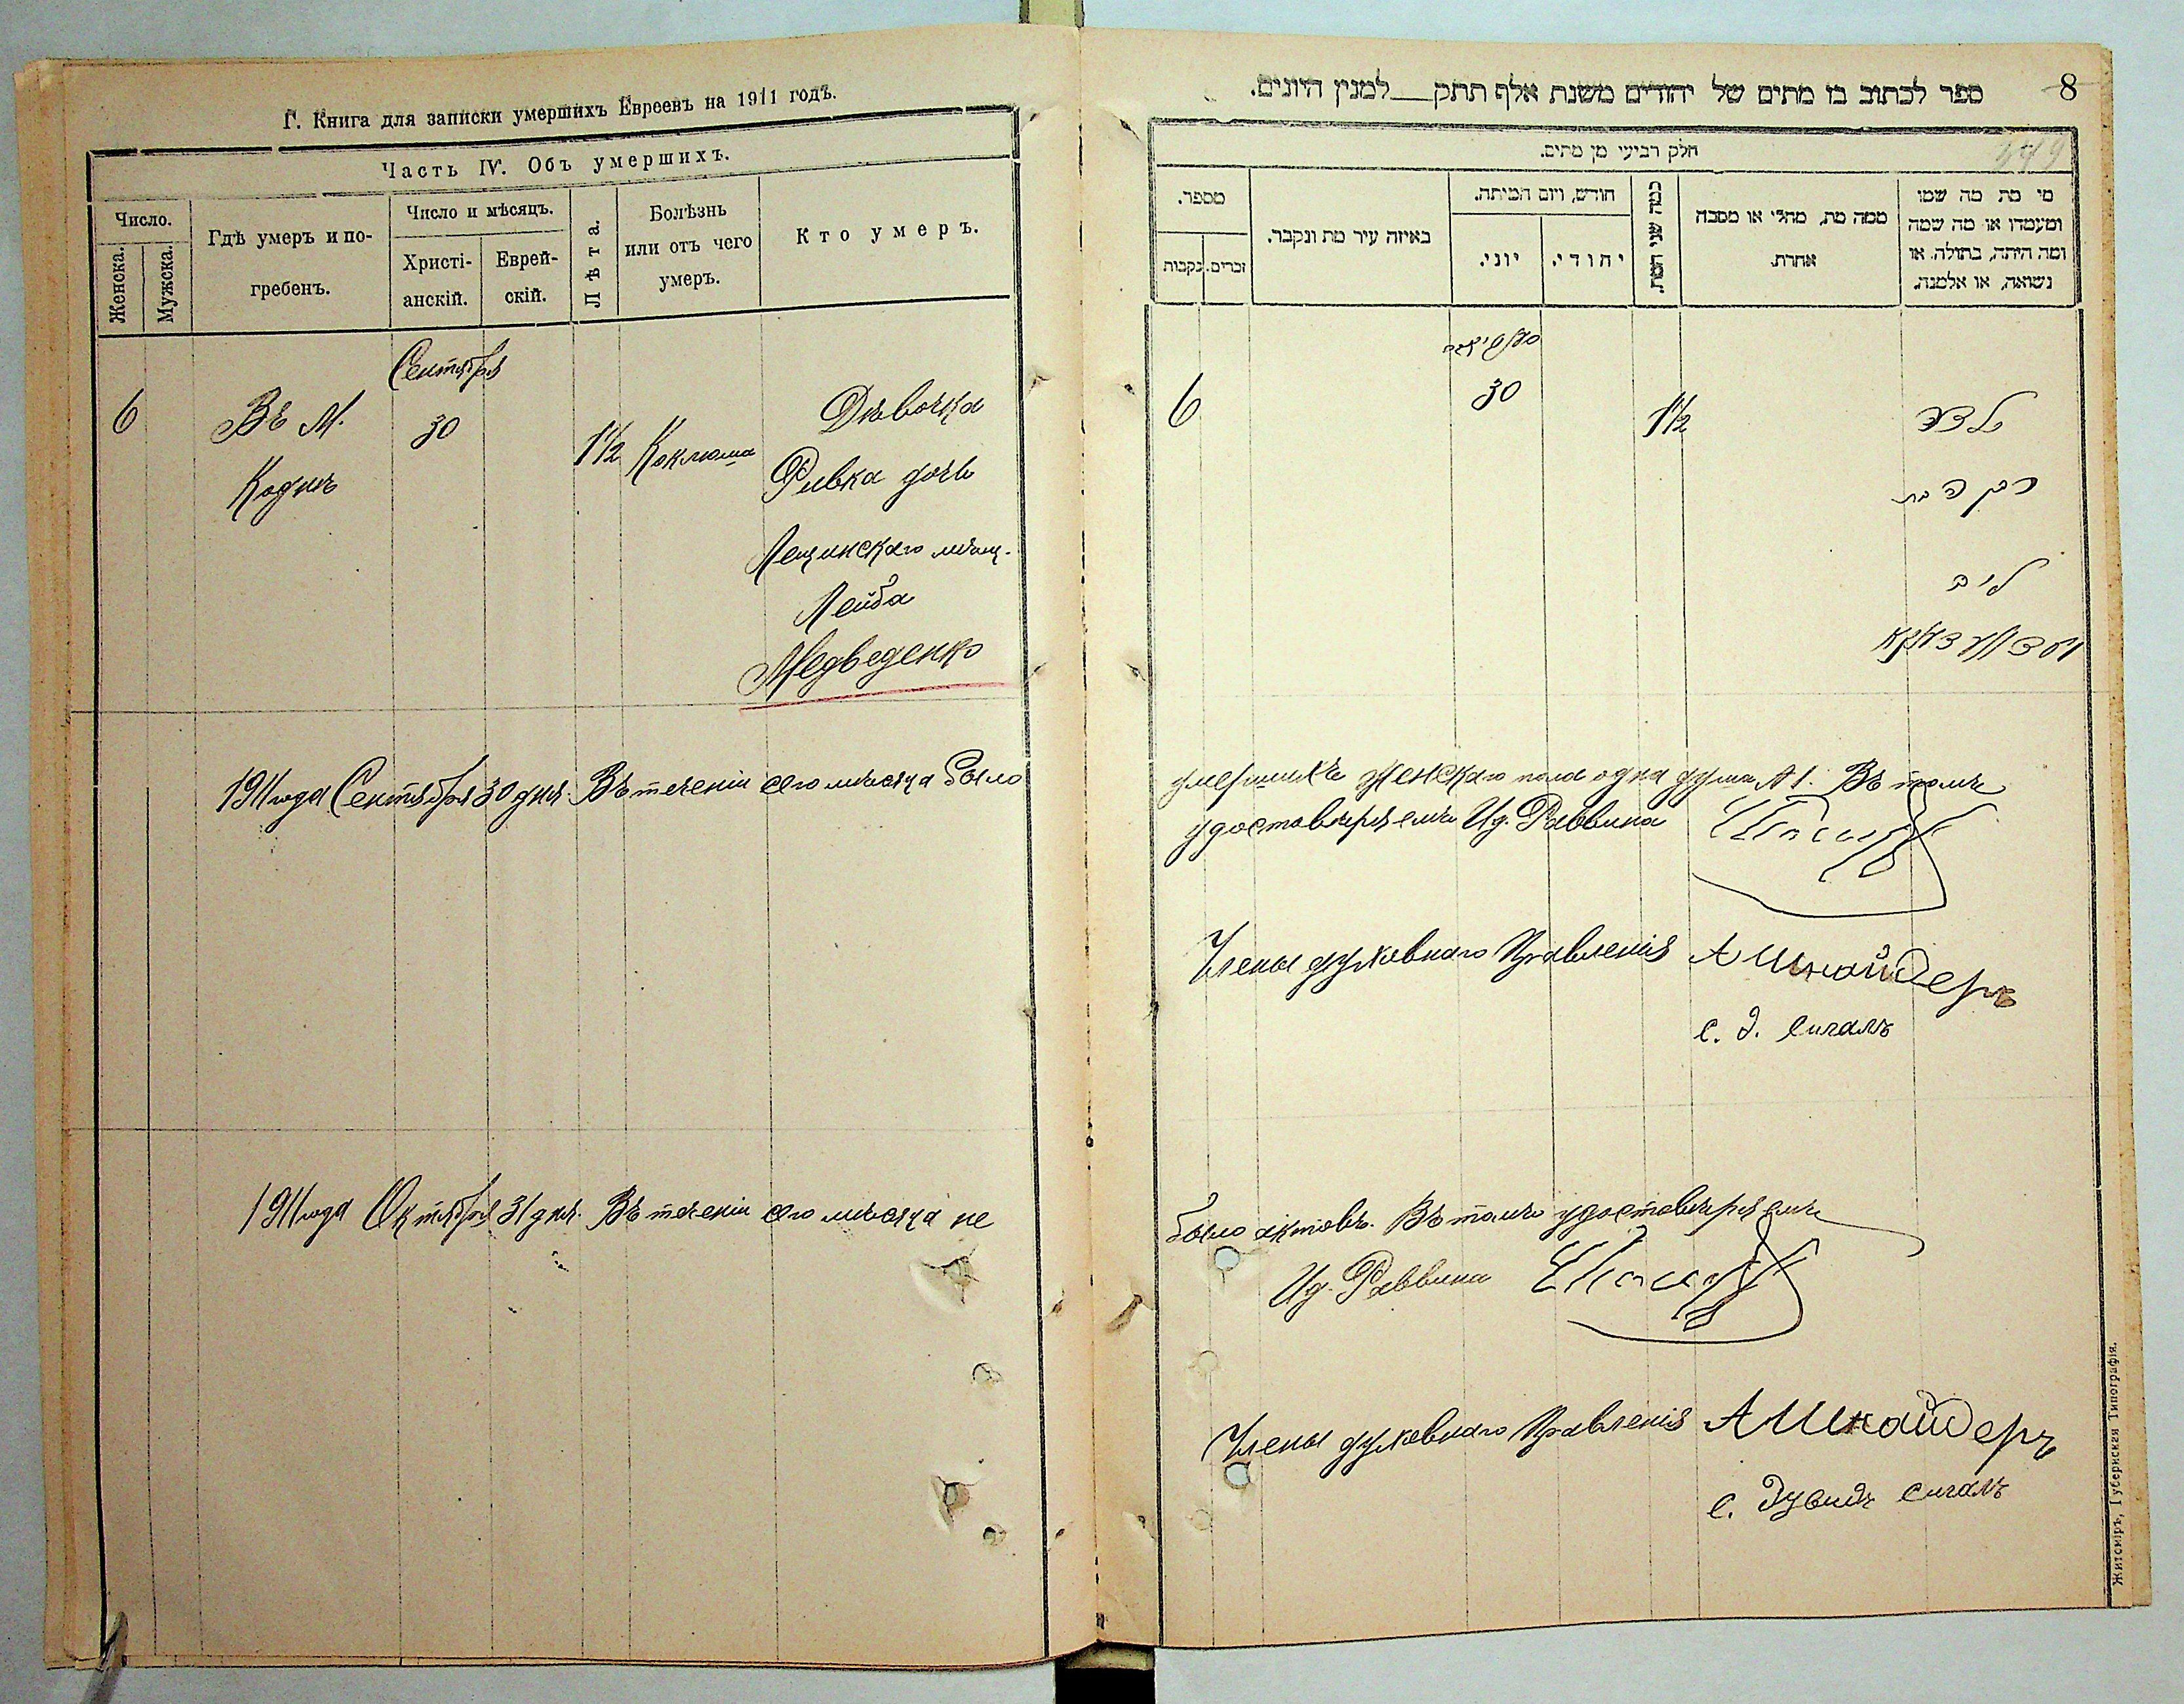 Г. Книга для записки умершихъ Евреевъ на 1911 годъ.
Часть IV. Объ умершихъ.
Число.
Женска.
Мужска.
Гдѣ умеръ и по-
гребенъ.
Число и мѣсяцъ.
Христі-
анскій.
Еврей-
скій.
Лѣта.
Болѣзнь
или отъ чего
умеръ.
Кто умеръ.
Сентября
6
Въ М.
Коднѣ
30
1½
Коклюша
Дѣвочка
Ривка дочь
Лещинскаго мѣщ.
Лейба
Медведенко
1911 года Сентября 30 дня. Въ теченіи сего мѣсяца было
1911 года Октября 31 дня. Въ теченіи сего мѣсяца не
8
ספר לכתוב בו מתים של יהודים משנת אלף תתק__למנין היונים.
חלק רביעי מן מתים.
מי מת מה שמו
ומעמדו או מה שמה
ומה היתה, בתולה, או
נשואה, או אלמנה.
ממה מת, מחלי או מסבה
אחרת.
כמה שני המת.
חודש, ויום המיתה.
יהודי.
יוני.
באיזה עיר מת ונקבר.
מספר.
זכרים.
נקבות
6
30
1½
ילדה
רבקה בת
ליב
умершихъ женскаго пола одна душа № 1. Въ томъ
удостовѣряемъ Ид. Раввина
Члены духовнаго Правленія А Шнайдеръ
с. д. сигалъ
было актовъ. Въ томъ удостовѣряемъ
Ид. Раввина
Члены духовнаго Правленія А Шнайдеръ
с. Дувидъ сигалъ
Житомiръ, Губернская Типографія.